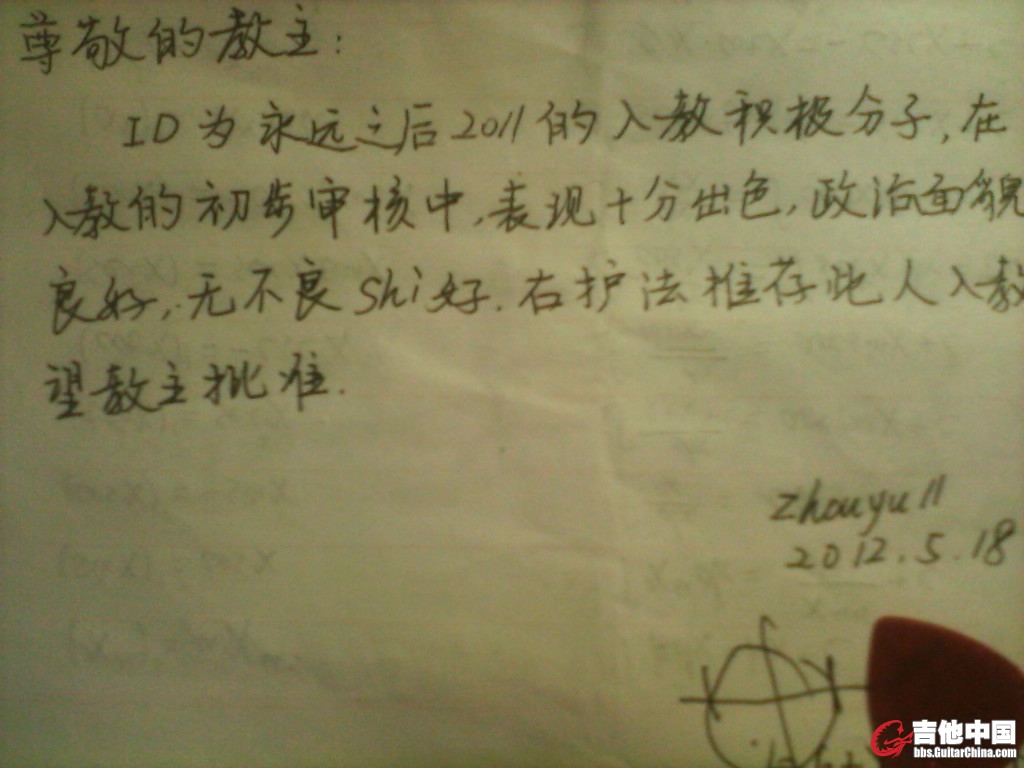 尊敬的教主:
ID为永远之后2011的入教积极分子,在
入教的初步审核中,表现十分出色,政治面貌
良好,无不良Shi好.右护法推荐此人入教
望教主批准.
zhouyu11
2012.5.18
吉他中国
bbs.GuitarChina.com